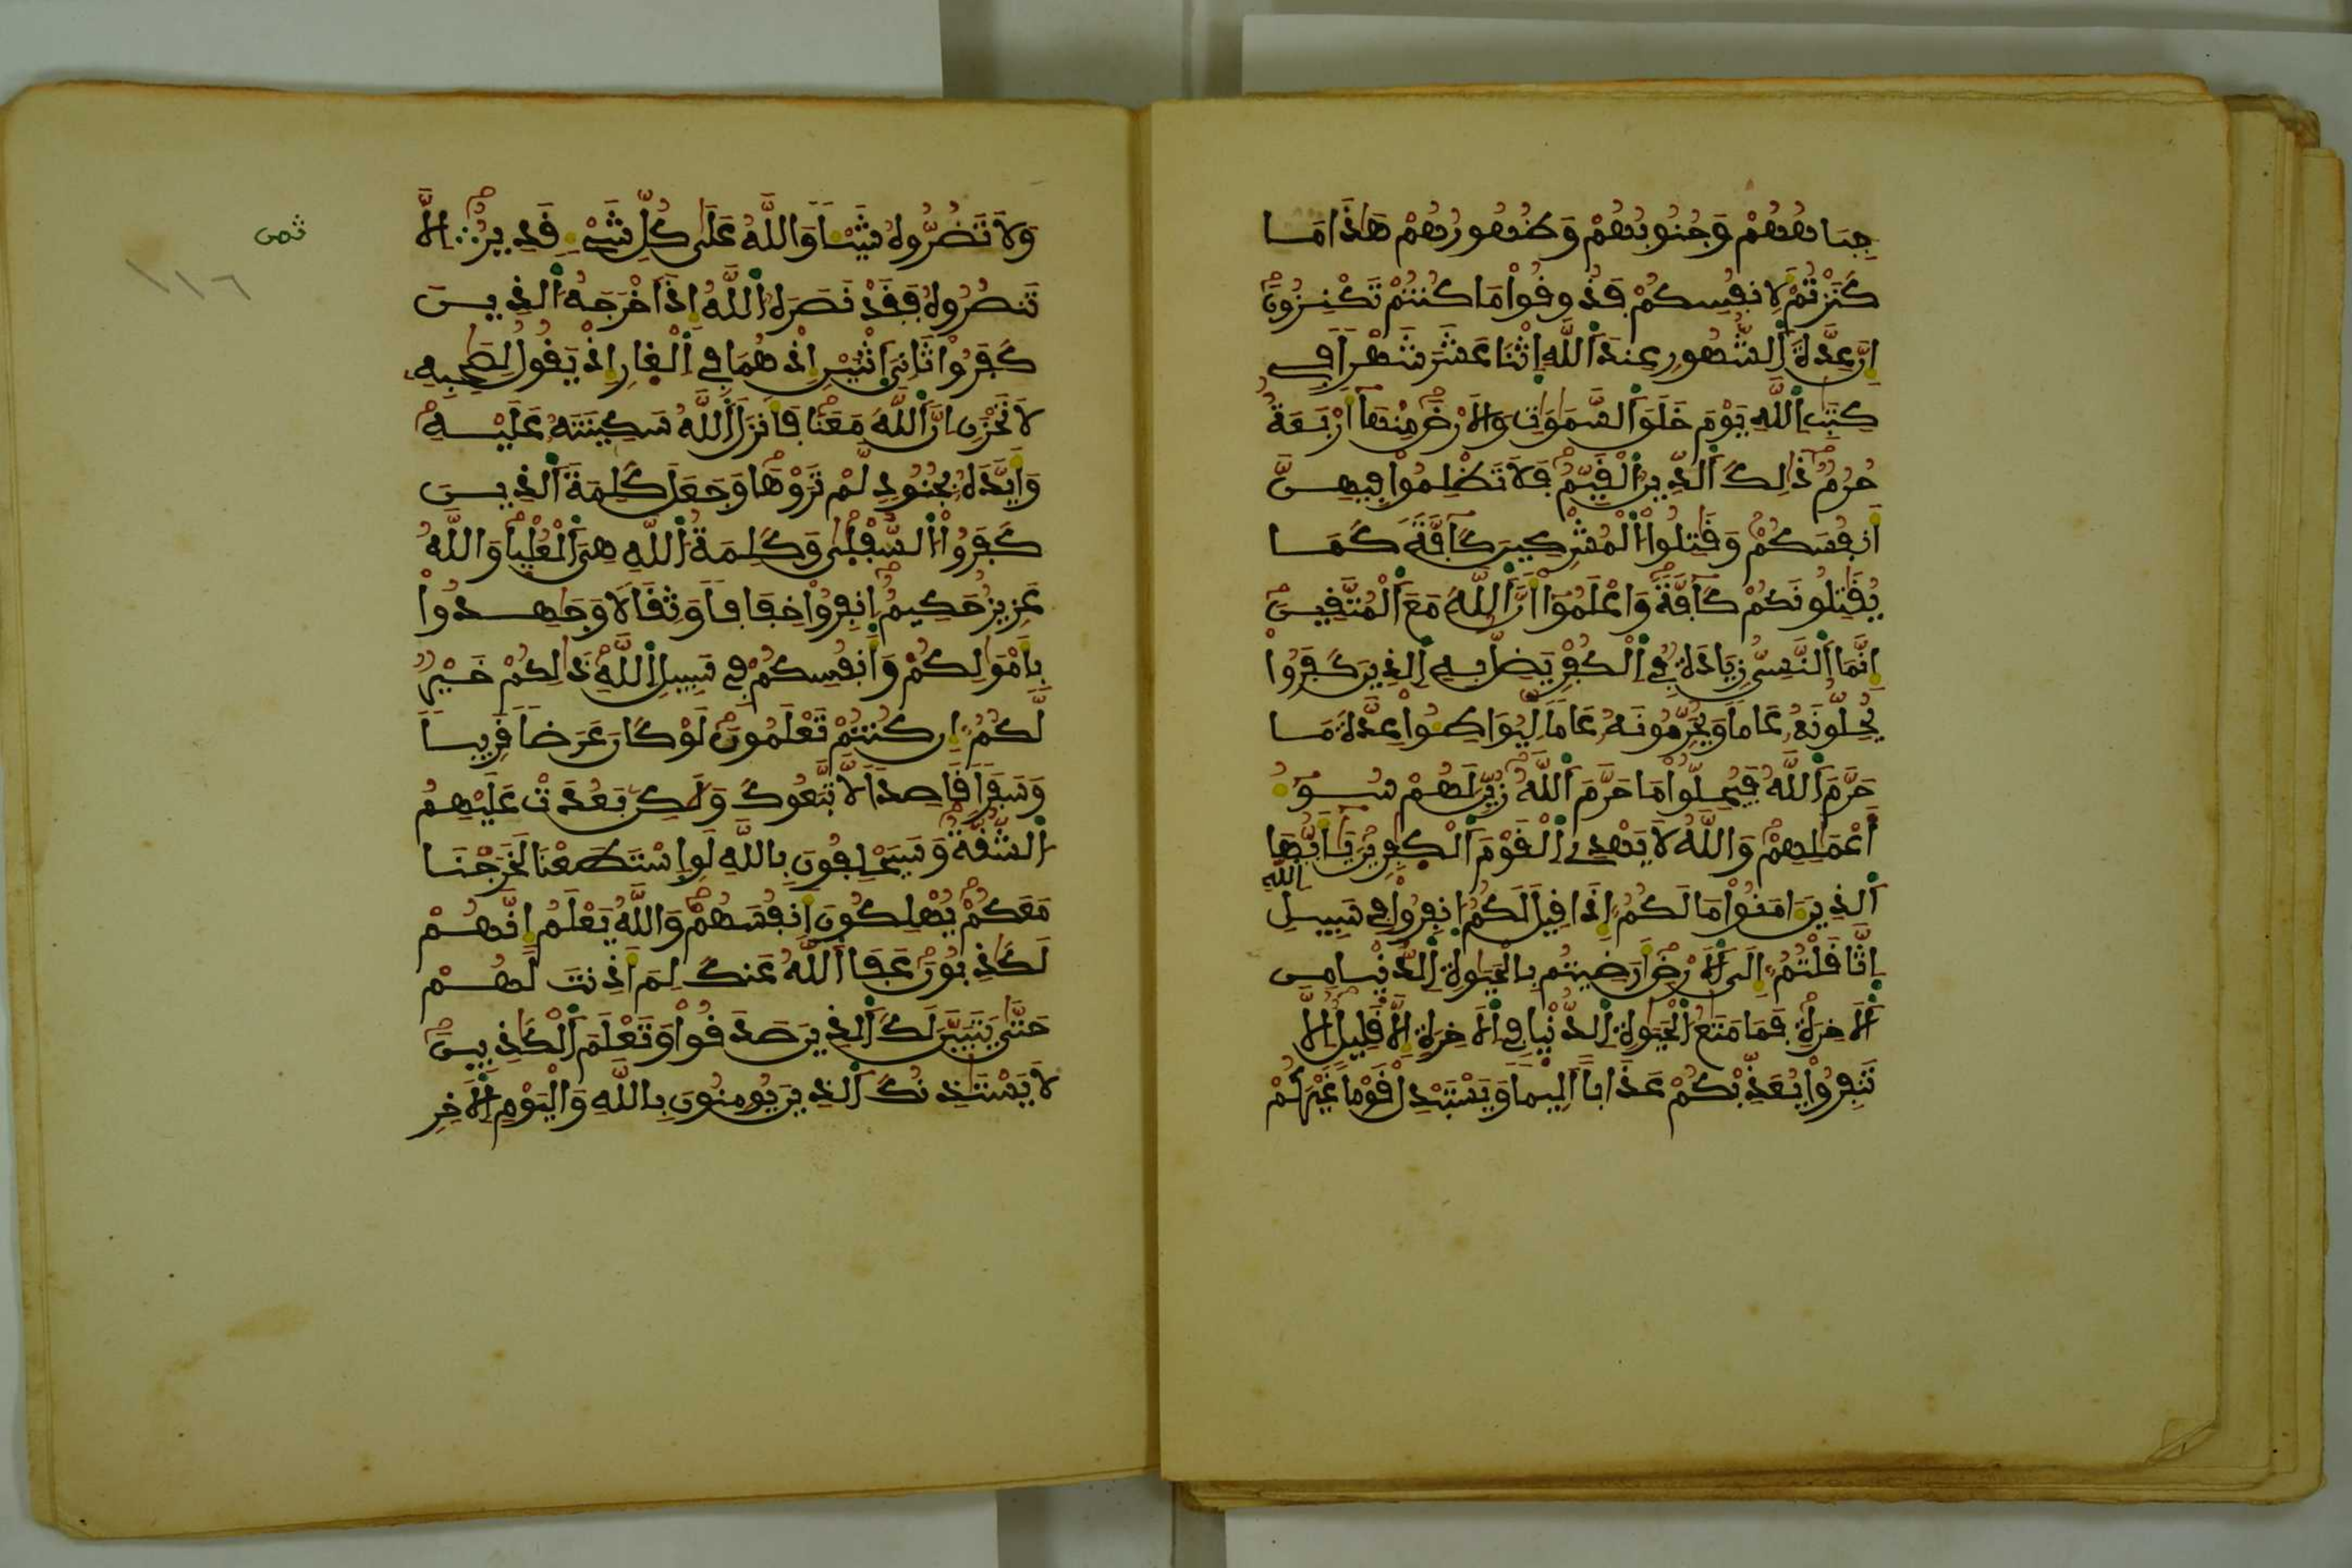 جِبَاهُهُمْ وَجُنُوبُهُمْ وَظُهُورُهُمْ هَٰذَا مَا
كَنَزْتُمْ لِأَنفُسِكُمْ فَذُوقُواْ مَا كُنتُمْ تَكْنِزُونَ
إِنَّ عِدَّةَ اَ۬لشُّهُورِ عِندَ اَ۬للَّهِ اِ۪ثْنَا عَشَرَ شَهْراً فِے
كِتَٰبِ اِ۬للَّهِ يَوْمَ خَلَقَ اَ۬لسَّمَٰوَٰتِ وَالَارْضَ مِنْهَآ أَرْبَعَةٌ
حُرُمٌ ذَٰلِكَ اَ۬لدِّينُ اُ۬لْقَيِّمُ فَلَا تَظْلِمُواْ فِيهِنَّ
أَنفُسَكُمْ وَقَٰتِلُواْ اُ۬لْمُشْرِكِينَ كَآفَّةً كَمَا
يُقَٰتِلُونَكُمْ كَآفَّةً وَاعْلَمُوٓاْ أَنَّ اَ۬للَّهَ مَعَ اَ۬لْمُتَّقِينَ
إِنَّمَا اَ۬لنَّسِيُّ زِيَادَةٌ فِے اِ۬لْكُفْرِ يَضِلُّ بِهِ اِ۬لذِينَ كَفَرُواْ
يُحِلُّونَهُۥ عَاماً وَيُحَرِّمُونَهُۥ عَاماً لِّيُوَاطِـُٔواْ عِدَّةَ مَا
حَرَّمَ اَ۬للَّهُ فَيُحِلُّواْ مَا حَرَّمَ اَ۬للَّهُ زُيِّنَ لَهُمْ سُوٓءُ
أَعْمَٰلِهِمْ وَاللَّهُ لَا يَهْدِے اِ۬لْقَوْمَ اَ۬لْكٰفِرِينَ يَٰٓأَيُّهَا
اَ۬لذِينَ ءَامَنُواْ مَا لَكُمُۥٓ إِذَا قِيلَ لَكُمُ اُ۪نفِرُواْ فِے سَبِيلِ اِ۬للَّهِ
اِ۪ثَّاقَلْتُمُۥٓ إِلَى اَ۬لَارْضِ أَرَضِيتُم بِالْحَيَوٰةِ اِ۬لدُّنْيا مِنَ
اَ۬لَاخِرَةِ فَمَا مَتَٰعُ اُ۬لْحَيَوٰةِ اِ۬لدُّنْيا فِے اِ۬لَاخِرَةِ إِلَّا قَلِيلٌ إِلَّا
تَنفِرُواْ يُعَذِّبْكُمْ عَذَاباً أَلِيماً وَيَسْتَبْدِلْ قَوْماً غَيْرَكُمْ
وَلَا تَضُرُّوهُ شَيْـٔاً وَاللَّهُ عَلَىٰ كُلِّ شَےْءٍ قَدِيرٌ ∴ إِلَّا
تَنصُرُوهُ فَقَدْ نَصَرَهُ اُ۬للَّهُ إِذَ اَخْرَجَهُ اُ۬لذِينَ
كَفَرُواْ ثَانِيَ اَ۪ثْنَيْنِ إِذْ هُمَا فِے اِ۬لْغارِ إِذْ يَقُولُ لِصَٰحِبِهِۦ
لَا تَحْزَنِ اِنَّ اَ۬للَّهَ مَعَنَا فَأَنزَلَ اَ۬للَّهُ سَكِينَتَهُۥ عَلَيْهِ
وَأَيَّدَهُۥ بِجُنُودٍ لَّمْ تَرَوْهَا وَجَعَلَ كَلِمَةَ اَ۬لذِينَ
كَفَرُواْ اُ۬لسُّفْلَىٰ وَكَلِمَةُ اُ۬للَّهِ هِيَ اَ۬لْعُلْيا وَاللَّهُ
عَزِيزٌ حَكِيمٌ اِ۪نفِرُواْ خِفَافاً وَثِقَالاً وَجَٰهِدُواْ
بِأَمْوَٰلِكُمْ وَأَنفُسِكُمْ فِے سَبِيلِ اِ۬للَّهِ ذَٰلِكُمْ خَيْرٌ
لَّكُمُۥٓ إِن كُنتُمْ تَعْلَمُونَ لَوْ كَانَ عَرَضاً قَرِيباً
وَسَفَراً قَاصِداً لَّاتَّبَعُوكَ وَلَٰكِنۢ بَعُدَتْ عَلَيْهِمُ
اُ۬لشُّقَّةُ وَسَيَحْلِفُونَ بِاللَّهِ لَوِ اِ۪سْتَطَعْنَا لَخَرَجْنَا
مَعَكُمْ يُهْلِكُونَ أَنفُسَهُمْ وَاللَّهُ يَعْلَمُ إِنَّهُمْ
لَكَٰذِبُونَ عَفَا اَ۬للَّهُ عَنكَ لِمَ أَذِنتَ لَهُمْ
حَتَّىٰ يَتَبَيَّنَ لَكَ اَ۬لذِينَ صَدَقُواْ وَتَعْلَمَ اَ۬لْكَٰذِبِينَ
لَا يَسْتَٰذِنُكَ اَ۬لذِينَ يُومِنُونَ بِاللَّهِ وَالْيَوْمِ اِ۬لَاخِرِ
ثمن
١١٦